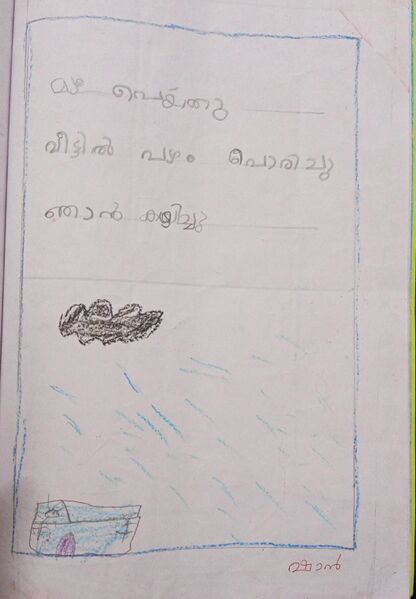 മഴ പെയ്തു
വീട്ടിൽ പഴം പൊരിചു
ഞാൻ കഴിച്ചു
ഷാൻ